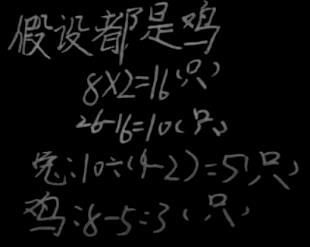 假设都是鸡
8×2=16(只)
26-16=10(只)
兔:10÷(4-2)=5(只)
鸡:8-5=3(只)